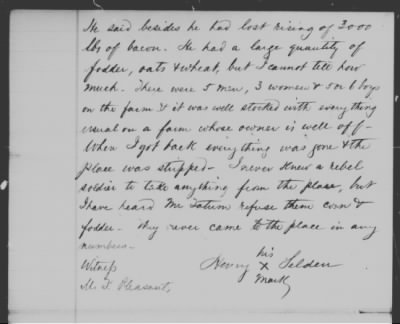 He said besides he had lost rising of 3000
lbs of bacon. He had a large quantity of
fodder, oats & wheat, but I cannot tell how
much. There were 5 men, 3 women & 5 or 6 boys
on the farm & it was well stocked with everything
usual on a farm whose owner is well off-
When I got back everything was gone & the
place was stripped- I never knew a rebel
soldier to take anything from the place, but
I have heard Mr Tatum refuse them corn &
fodder- They never came to the place in any
numbers-
his
Witness Henry X Selden
mark
M. F. Pleasant,